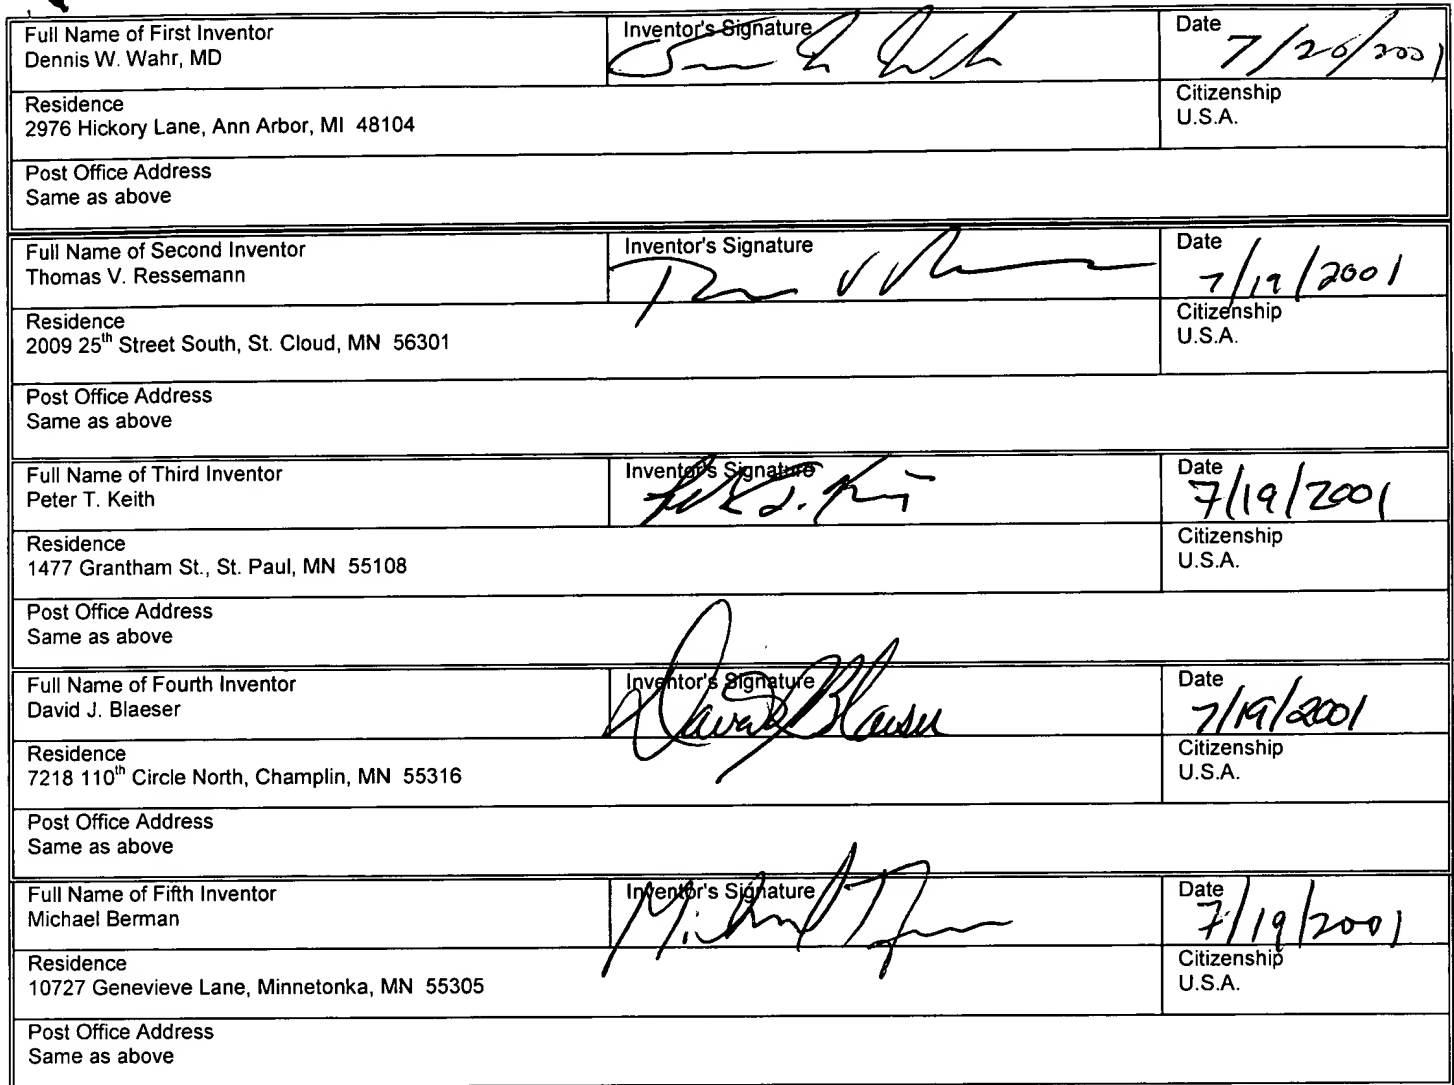 Full Name of First Inventor
Dennis W. Wahr, MD
Inventor's Signature
Date
7/20/2001
Residence
2976 Hickory Lane, Ann Arbor, MI 48104
Citizenship
U.S.A.
Post Office Address
Same as above
Full Name of Second Inventor
Thomas V. Ressemann
Inventor's Signature
Date
7/19/2001
Residence
2009 25th Street South, St. Cloud, MN 56301
Citizenship
U.S.A.
Post Office Address
Same as above
Full Name of Third Inventor
Peter T. Keith
Inventor's Signature
Date
7/19/2001
Residence
1477 Grantham St., St. Paul, MN 55108
Citizenship
U.S.A.
Post Office Address
Same as above
Full Name of Fourth Inventor
David J. Blaeser
Inventor's Signature
David J Blaeser
Date
7/19/2001
Residence
7218 110th Circle North, Champlin, MN 55316
Citizenship
U.S.A.
Post Office Address
Same as above
Full Name of Fifth Inventor
Michael Berman
Inventor's Signature
Date
7/19/2001
Residence
10727 Genevieve Lane, Minnetonka, MN 55305
Citizenship
U.S.A.
Post Office Address
Same as above